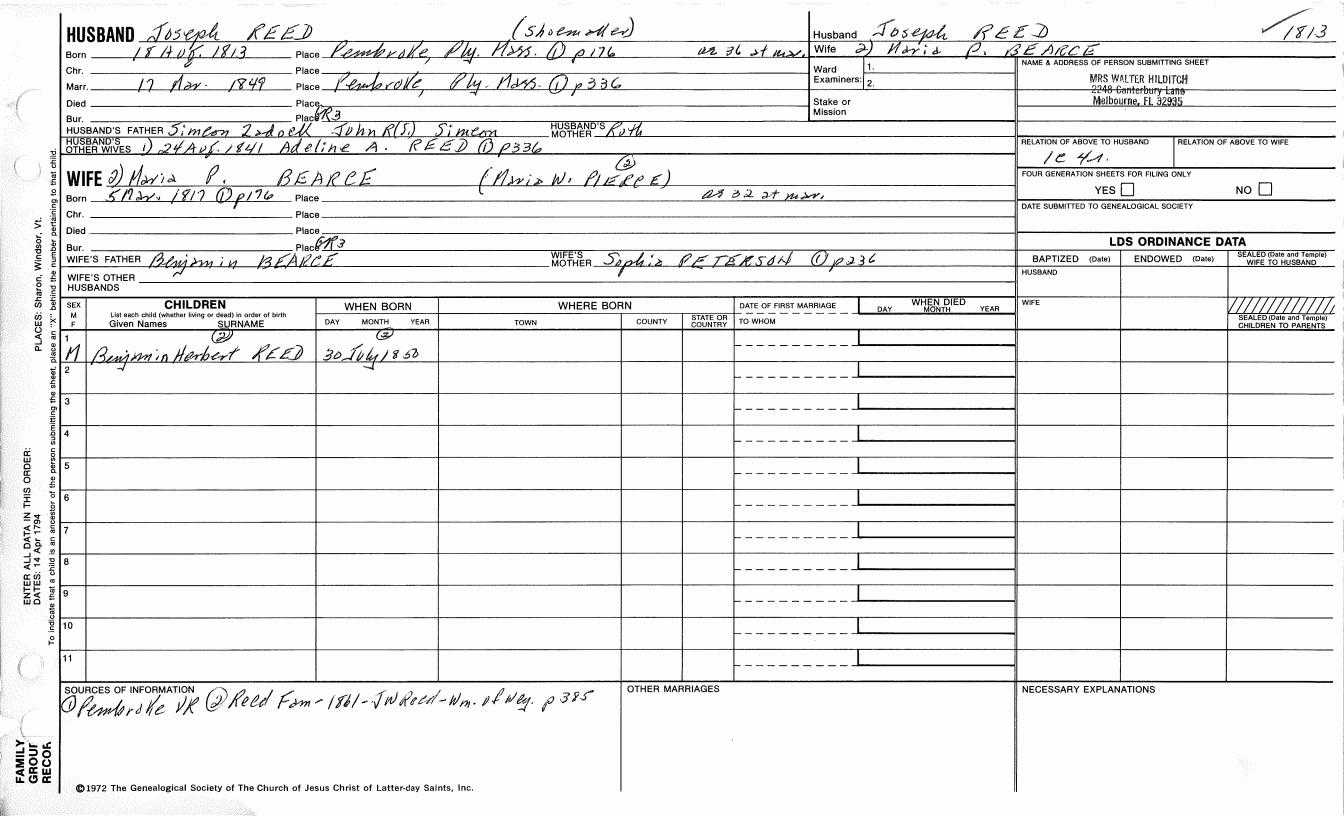 HUSBAND Joseph REED (Shoemaker)
Born 18 Aug. 1813 Place Pembroke, Ply. Mass. ① p176 as 36 at mar.
Chr. Place
Marr. 17 Mar. 1849 Place Pembroke, Ply. Mass. ① p336
Died Place
Bur. Place GR3
HUSBAND'S FATHER Simeon Zadock John R(S.) Simeon HUSBAND'S MOTHER Ruth
HUSBAND'S OTHER WIVES 1) 24 Aug. 1841 Adeline A. REED ① p336
Husband Joseph REED 1813
Wife 2) Maria P. BEARCE
Ward Examiners: 1. 2.
Stake or Mission
NAME & ADDRESS OF PERSON SUBMITTING SHEET
MRS WALTER HILDITCH
2248 Canterbury Lane
Melbourne, FL 32935
RELATION OF ABOVE TO HUSBAND RELATION OF ABOVE TO WIFE
1c 4r.
FOUR GENERATION SHEETS FOR FILING ONLY
YES NO
DATE SUBMITTED TO GENEALOGICAL SOCIETY
②
WIFE 2) Maria P. BEARCE (Maria W. PIERCE)
Born 5 Mar. 1817 ① p176 Place as 32 at mar.
Chr. Place
Died Place
Bur. Place GR3
WIFE'S FATHER Benjamin BEARCE WIFE'S MOTHER Sophia PETERSON ① p236
WIFE'S OTHER HUSBANDS
LDS ORDINANCE DATA
BAPTIZED (Date) ENDOWED (Date) SEALED (Date and Temple) WIFE TO HUSBAND
HUSBAND
WIFE
SEALED (Date and Temple) CHILDREN TO PARENTS
SEX M F
CHILDREN
List each child (whether living or dead) in order of birth
Given Names SURNAME
WHEN BORN
DAY MONTH YEAR
WHERE BORN
TOWN COUNTY STATE OR COUNTRY
DATE OF FIRST MARRIAGE
TO WHOM
WHEN DIED
DAY MONTH YEAR
② ②
1 M Benjamin Herbert REED 30 July 1850
2
3
4
5
6
7
8
9
10
11
SOURCES OF INFORMATION
① Pembroke VR ② Reed Fam-1861-JW Reed-Wm. of Wey. p 385
OTHER MARRIAGES
NECESSARY EXPLANATIONS
©1972 The Genealogical Society of The Church of Jesus Christ of Latter-day Saints, Inc.
FAMILY GROUP RECOR
ENTER ALL DATA IN THIS ORDER:
DATES: 14 Apr 1794 PLACES: Sharon, Windsor, Vt.
To indicate that a child is an ancestor of the person submitting the sheet, place an "X" behind the number pertaining to that child.